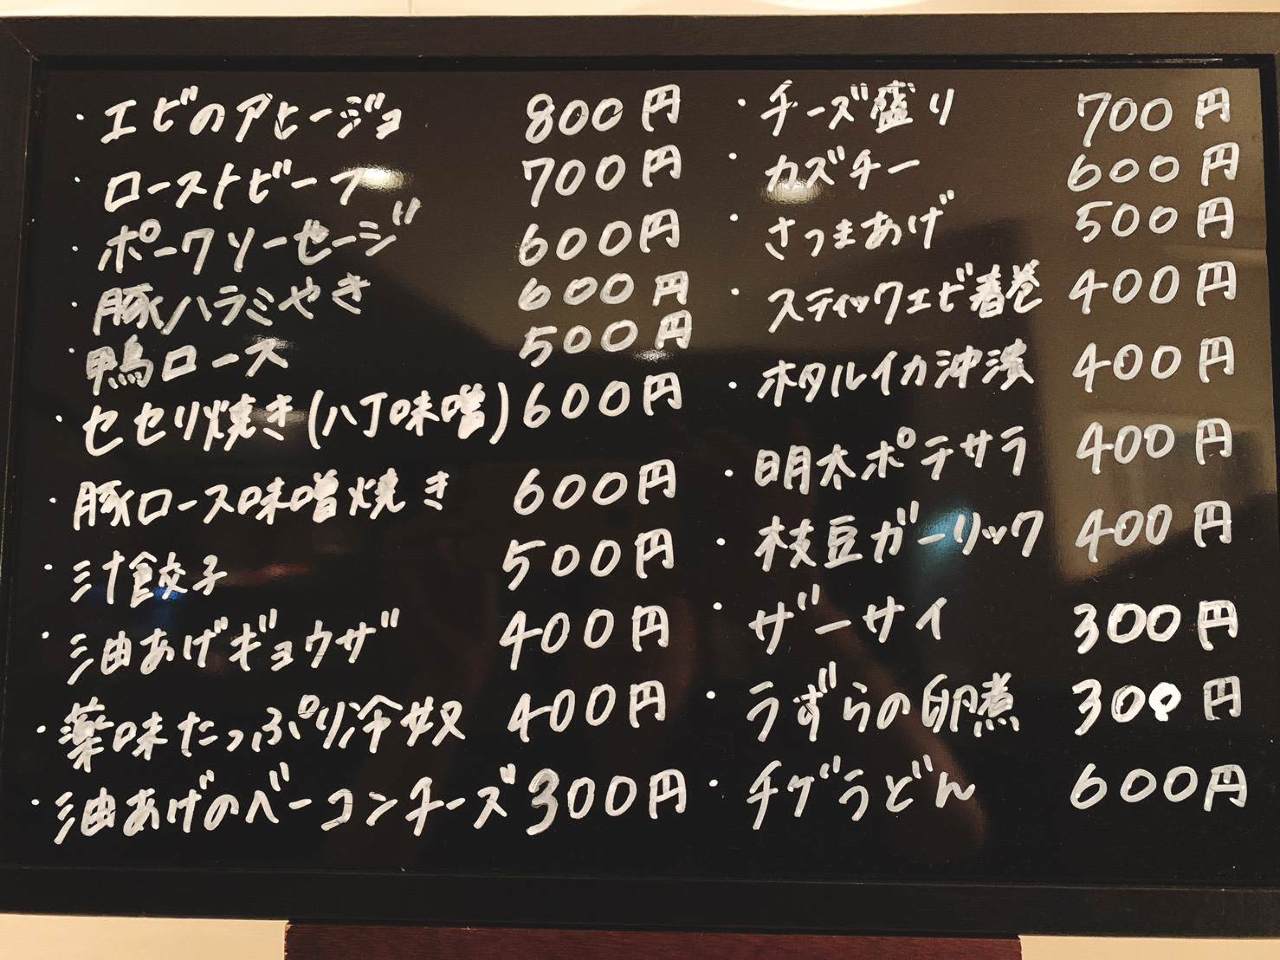 ・エビのアヒージョ 800円
・ローストビーフ 700円
・ポークソーセージ 600円
・豚ハラミやき 600円
・鴨ロース 500円
・セセリ焼き(八丁味噌) 600円
・豚ロース味噌焼き 600円
・汁餃子 500円
・油あげギョウザ 400円
・薬味たっぷり冷奴 400円
・油あげのベーコンチーズ 300円
・チーズ盛り 700円
・カズチー 600円
・さつまあげ 500円
・スティックエビ春巻 400円
・ホタルイカ沖漬 400円
・明木ポテサラ 400円
・枝豆ガーリック 400円
・ザーサイ 300円
・うずらの卵煮 300円
・チゲうどん 600円